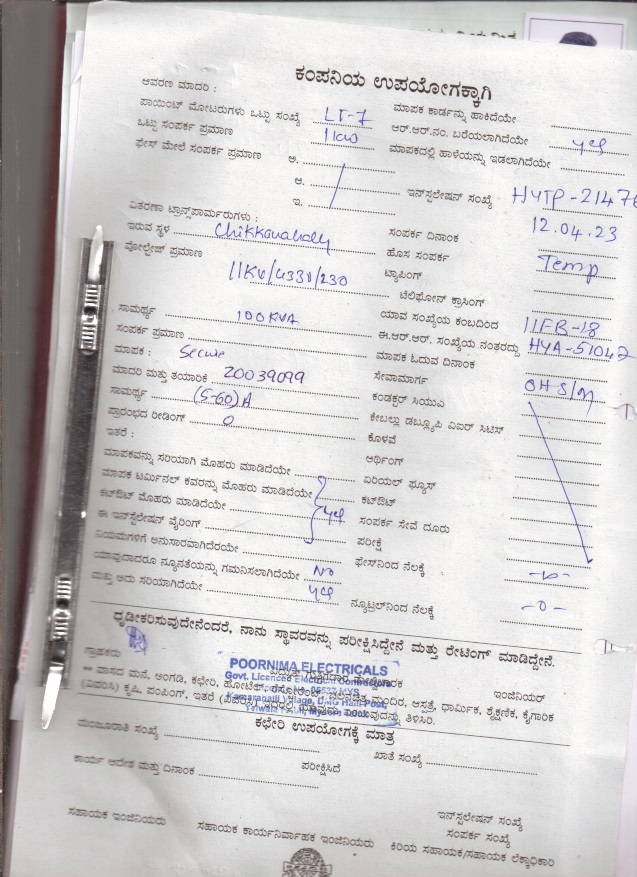 ಕಂಪನಿಯ ಉಪಯೋಗಕ್ಕಾಗಿ
ಆವರಣ ಮಾದರಿ :
ಮಾಪಕ ಕಾರ್ಡನ್ನು ಹಾಕಿದೆಯೇ
ಪಾಯಿಂಟ್ ಮೋಟರುಗಳು ಒಟ್ಟು ಸಂಖ್ಯೆ LT-7
ಆರ್.ಆರ್.ನಂ. ಬರೆಯಲಾಗಿದೆಯೇ yes
ಒಟ್ಟು ಸಂಪರ್ಕ ಪ್ರಮಾಣ 1kw
ಮಾಪಕದಲ್ಲಿ ಹಾಳೆಯನ್ನು ಇಡಲಾಗಿದೆಯೇ
ಫೇಸ್ ಮೇಲೆ ಸಂಪರ್ಕ ಪ್ರಮಾಣ ಅ.
ಆ.
ಇ.
ಇನ್‌ಸ್ಟಲೇಷನ್ ಸಂಖ್ಯೆ HYTP-21476
ವಿತರಣಾ ಟ್ರಾನ್ಸ್‌ಪಾರ್ಮರುಗಳು :
ಸಂಪರ್ಕ ದಿನಾಂಕ 12.04.23
ಇರುವ ಸ್ಥಳ
ಹೊಸ ಸಂಪರ್ಕ Temp
ವೋಲ್ಟೇಜ್ ಪ್ರಮಾಣ
ಟ್ಯಾಪಿಂಗ್
11KV/433V/230
ಟೆಲಿಫೋನ್ ಕ್ರಾಸಿಂಗ್
ಸಾಮರ್ಥ್ಯ 100KVA
ಯಾವ ಸಂಖ್ಯೆಯ ಕಂಬದಿಂದ 11FB-18
ಸಂಪರ್ಕ ಪ್ರಮಾಣ
ಈ.ಆರ್.ಆರ್. ಸಂಖ್ಯೆಯ ನಂತರದ್ದು HYA-51042
ಮಾಪಕ : Secure
ಮಾಪಕ ಓದುವ ದಿನಾಂಕ
ಮಾದರಿ ಮತ್ತು ತಯಾರಿಕೆ 20039099
ಸೇವಾಮಾರ್ಗ OH S/M
ಸಾಮರ್ಥ್ಯ (5-60)A
ಕಂಡಕ್ಟರ್ ಸಿಯುವಿ
ಪ್ರಾರಂಭದ ರೀಡಿಂಗ್ 0
ಕೇಬಲ್ಲು ಡಬ್ಲ್ಯೂಪಿ ವಿಐರ್ ಸಿಟಿಸ್
ಇತರೆ :
ಕೊಳವೆ
ಅರ್ಥಿಂಗ್
ಮಾಪಕವನ್ನು ಸರಿಯಾಗಿ ಮೊಹರು ಮಾಡಿದೆಯೇ
ಏರಿಯಲ್ ಫ್ಯೂಸ್
ಮಾಪಕ ಟರ್ಮಿನಲ್ ಕವರನ್ನು ಮೊಹರು ಮಾಡಿದೆಯೇ
ಕಟ್‌ಔಟ್
ಕಟ್‌ಔಟ್ ಮೊಹರು ಮಾಡಿದೆಯೇ yes
ಸಂಪರ್ಕ ಸೇವೆ ದೂರು
ಈ ಇನ್‌ಸ್ಟಲೇಷನ್ ವೈರಿಂಗ್
ಪರೀಕ್ಷೆ
ನಿಯಮಗಳಿಗೆ ಅನುಸಾರವಾಗಿದೆರೆಯೇ
ಫೇಸ್‌ನಿಂದ ನೆಲಕ್ಕೆ -0-
ಯಾವುದಾದರೂ ನ್ಯೂನತೆಯನ್ನು ಗಮನಿಸಲಾಗಿದೆಯೇ No
ಮತ್ತು ಅದು ಸರಿಯಾಗಿದೆಯೇ yes
ನ್ಯೂಟ್ರಲ್‌ನಿಂದ ನೆಲಕ್ಕೆ -0-
ಧೃಡೀಕರಿಸುವುದೇನೆಂದರೆ, ನಾನು ಸ್ಥಾವರವನ್ನು ಪರೀಕ್ಷಿಸಿದ್ದೇನೆ ಮತ್ತು ರೇಟಿಂಗ್ ಮಾಡಿದ್ದೇನೆ.
ಗ್ರಾಹಕರು
ಇಂಜಿನಿಯರ್
POORNIMA ELECTRICALS
Govt. Licenced Electrical Contractors
** ವಾಸದ ಮನೆ, ಅಂಗಡಿ, ಕಛೇರಿ, ಹೋಟೆಲ್, ರೆಸ್ಟೋರೆಂಟ್, ಚಲನಚಿತ್ರ ಮಂದಿರ, ಆಸತ್ರೆ, ಧಾರ್ಮಿಕ, ಶೈಕ್ಷಣಿಕ, ಕೈಗಾರಿಕ
(ವಿವರಿಸಿ) ಕೃಷಿ, ಪಂಪಿಂಗ್, ಇತರೆ ತಿಳಿಸಿರಿ.
ಕಛೇರಿ ಉಪಯೋಗಕ್ಕೆ ಮಾತ್ರ
ಮಂಜೂರಾತಿ ಸಂಖ್ಯೆ
ಖಾತೆ ಸಂಖ್ಯೆ
ಕಾರ್ಯ ಆದೇಶ ಮತ್ತು ದಿನಾಂಕ
ಪರೀಕ್ಷಿಸಿದೆ
ಇನ್‌ಸ್ಟಲೇಷನ್ ಸಂಖ್ಯೆ
ಸಂಪರ್ಕ ಸಂಖ್ಯೆ
ಸಹಾಯಕ ಇಂಜಿನಿಯರು
ಸಹಾಯಕ ಕಾರ್ಯನಿರ್ವಾಹಕ ಇಂಜಿನಿಯರು
ಕಿರಿಯ ಸಹಾಯಕ/ಸಹಾಯಕ ಲೆಕ್ಕಾಧಿಕಾರಿ